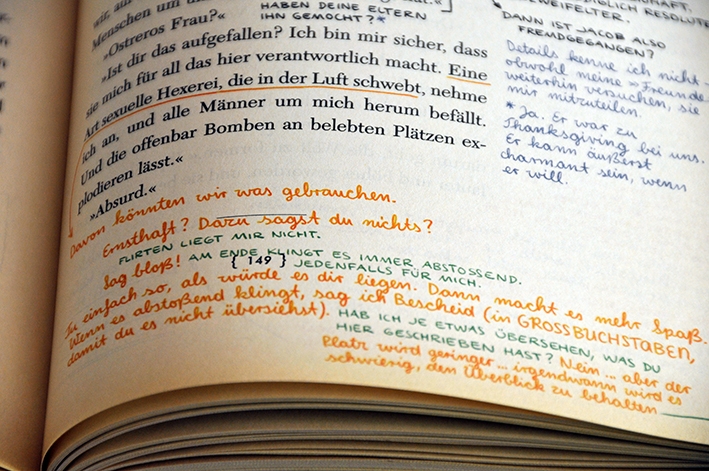 Menschen um
»Ostreros Frau?«
»Ist dir das aufgefallen? Ich bin mir sicher, dass
sie mich für all das hier verantwortlich macht. Eine
Art sexuelle Hexerei, die in der Luft schwebt, nehme
ich an, und alle Männer um mich herum befällt.
Und die offenbar Bomben an belebten Plätzen ex-
plodieren lässt.«
»Absurd.«
HABEN DEINE ELTERN
IHN GEMOCHT?*
DANN IST JACOB ALSO
FREMDGEGANGEN?
Details kenne ich nicht –
obwohl meine »Freunde«
weiterhin versuchen, sie
mir mitzuteilen.
* Ja. Er war zu
Thanksgiving bei uns.
Er kann äußerst
charmant sein, wenn
er will.
Davon könnten wir was gebrauchen.
Ernsthaft? Dazu sagst du nichts?
FLIRTEN LIEGT MIR NICHT.
Sag bloß! AM ENDE KLINGT ES IMMER ABSTOSSEND.
{ 149 } JEDENFALLS FÜR MICH.
Tu einfach so, als würde es dir liegen. Dann macht es mehr Spaß.
Wenn es abstoßend klingt, sag ich Bescheid (in GROSSBUCHSTABEN,
damit du es nicht übersiehst). HAB ICH JE ETWAS ÜBERSEHEN, WAS DU
HIER GESCHRIEBEN HAST? Nein ... aber der
Platz wird geringer ... irgendwann wird es
schwierig, den Überblick zu behalten